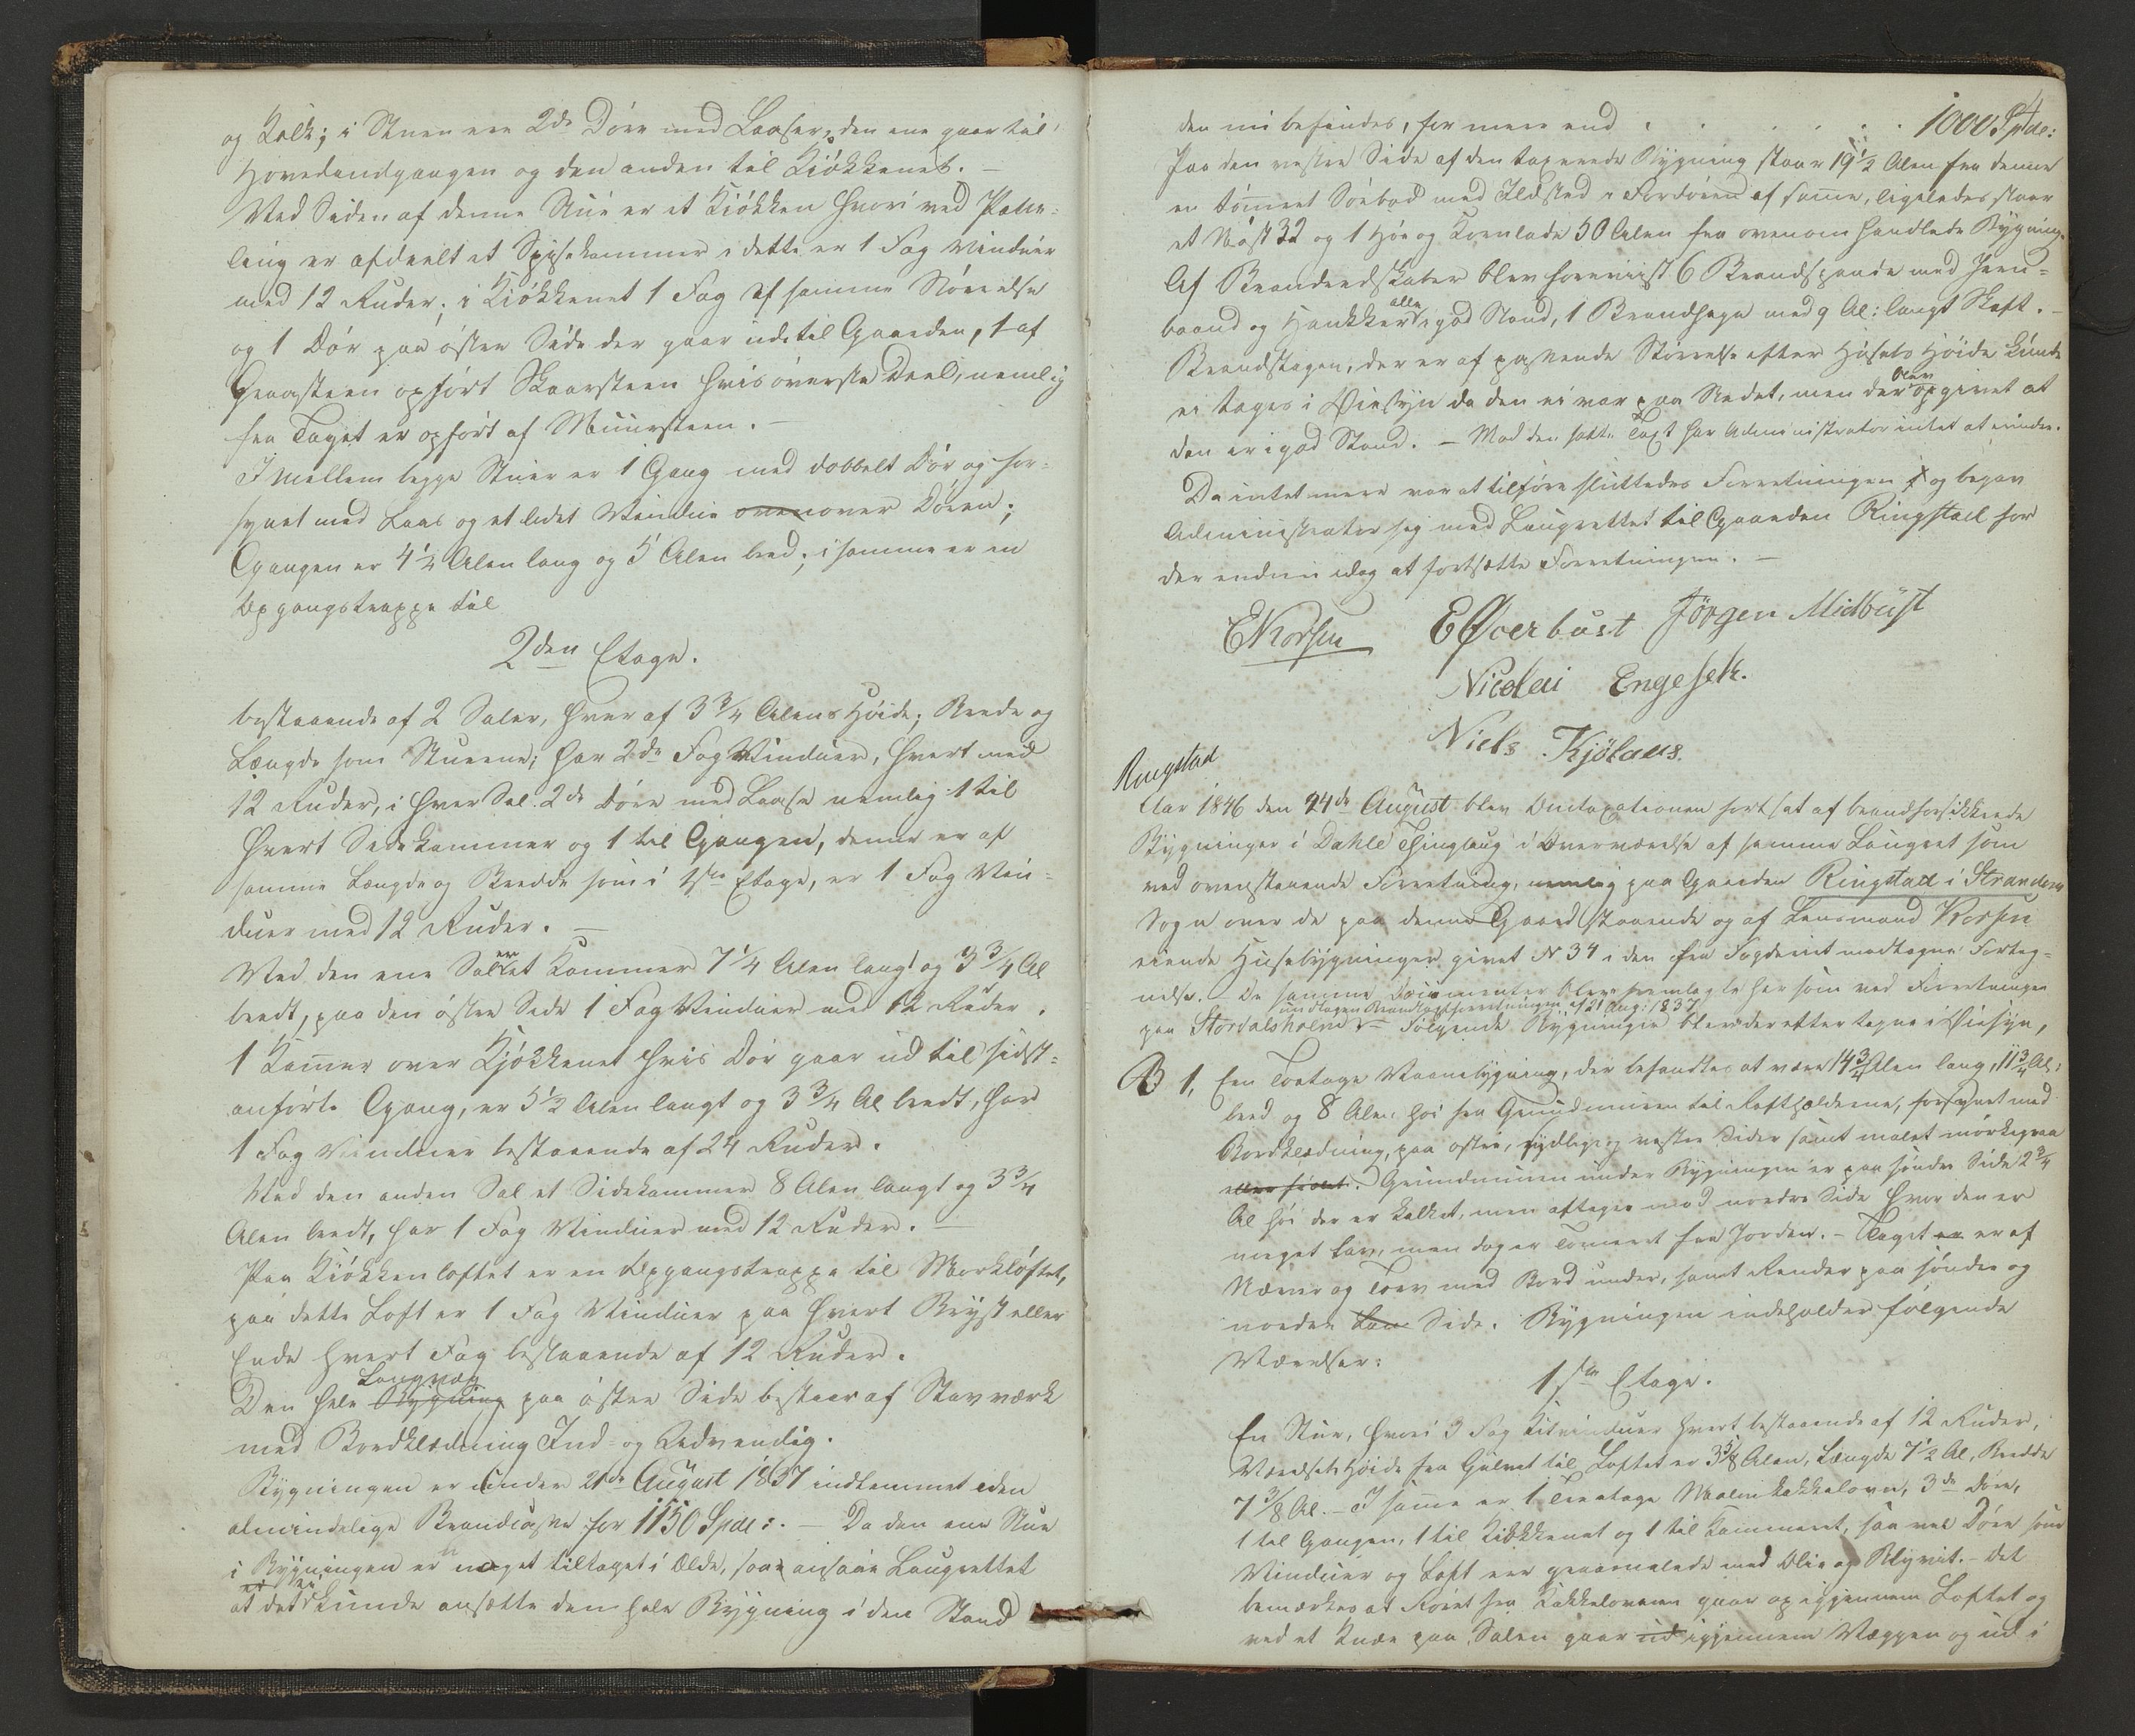 og Kalk; i Stuen ere 2de Döre med Laaser, den ene gaar til
Hovedindgangen og den anden til Kiökkenet. —
Ved Siden af denne Stue er et Kiökken hvori ved Pane-
ling er afdeelt et Spisekammer i dette er 1 Fag Vinduer
med 12 Ruder; i Kiökkenet 1 Fag af samme Störrelse
og 1 Dör paa östre Side der gaar ud til Gaarden, 1 af
Graasteen opfört Skaarsteen hvis överste Deel, nemlig
fra Taget er opfört af Muursteen. —
Imellem begge Stuer er 1 Gang med dobbelt Dör og for-
synet med Laas og et lidet Vindue ovenover Dören;
Gangen er 4 1/2 Alen lang og 5 Alen bred; i samme er en
Opgangstrappe til
2den Etage.
bestaaende af 2 Saler, hver af 3 3/4 Alens Höide; Brede og
Længde som Stuerne; har 2de Fag Vinduer, hvert med
12 Ruder, i hver Sal 2de Döre med Laase nemlig 1 til
hvert Sidekammer og 1 til Gangen, denne er af
samme Længde og Bredde som i 1ste Etage, er 1 Fag Vin-
duer med 12 Ruder. —
Ved den ene Sal er et Kammer 7 1/4 Alen langt og 3 3/4 Al
bredt, paa den östre Side 1 Fag Vinduer med 12 Ruder.
1 Kamer over Kjökkenet hvis Dör gaar ud til sidst-
anförte Gang, er 5 1/2 Alen langt og 3 3/4 Al bredt, har
1 Fag Vinduer bestaaende af 24 Ruder.
Ved den anden Sal et Sidekammer 8 Alen langt og 3 3/4
Alen bredt, har 1 Fag Vinduer med 12 Ruder. —
Paa Kiökkenloftet er en Opgangstrappe til Mörkloftet,
paa dette Loft er 1 Fag Vinduer paa hvert Bryst eller
Ende hvert Fag bestaaende af 12 Ruder.
Langvæg
Den hele Bygning paa östre Side bestaar af Stavværk
med Bordklædning Ind- og Udvendig.
Bygningen er under 21de August 1837 indlemmet i den
almindelige Brandcasse for 1150 Spdl:. — Da den ene Stue
i Bygningen er meget tiltaget i Ælde, saa ansaae Laugrettet
at det ei kunde ansætte den hele Bygning i den Stand
4
den nu befindes, for mere end . . . . . . 1000 Spdl:
Paa den vestre Side af den taxerede Bygning staar 19 1/2 Alen fra denne
en tömret Söebod med Ildsted i Fordören af same, ligeledes staar
et Nöst 32 og 1 Höe og Kornlade 50 Alen fra ovenom handlede Bygning.
Af Brandredskaber blev foreviist 6 Brandspande med Jern-
baand og Hankker alle i god Stand, 1 Brandhage med 9 Al: langt Skaft. —
Brandstigen, der er af passende Störrelse efter Husets Höide kunde
ei tages i Öiesyn da den ei var paa Stedet, men der blev opgivet at
den er i god Stand. — Mod den satte Taxt har Administrator intet at erindre.
Da intet mere var at tilföre sluttedes Forretningen og begav
Administrator sig med Laugrettet til Gaarden Ringstad for
der endnu idag at fortsætte Forretningen. —
E Korsen E Överbust Jörgen Midbust
Nicolai Engeseth.
Niels Kjölaas.
Ringstad
Aar 1846 den 24de August blev Omtaxationen fortsat af brandforsikkrede
Bygninger i Dahle Thinglaug i Overværelse af samme Laugret som
ved ovenstaaende Forretning, nemlig paa Gaarden Ringstad i Strandens
Sogn over de paa denne Gaard staaende og af Lensmand Korsen
eiende Huusebygninger givet No 34 i den fra Fogderiet modtagne Forteg-
nelse. — De samme Documenter blev fremlagte her som ved Forretningen
undtagen Brandtaxtforretningen af 21 Aug: 1837
paa Stordalsholm — Fölgende Bygninger blev derefter tagne i Öiesyn,
B 1. Een Toetages Vaanebygning, der befandtes at være 14 3/4 Alen lang, 11 3/4 Al:
bred og 8 Alen höi fra Grundmuren til Raftholderne, forsynet med
Bordklædning, paa östre, sydlige og vestre Sider samt malet mörkegraa
Grundmuren under Bygningen er paa söndre Side 2 3/4
Al höi der er kalket, men aftager mod nordre Side hvor den er
meget lav, men dog er Tömret fra Jorden. — Taget er af
Næver og Torv med Bord under, samt Render paa söndre og
nordre Side. Bygningen indeholder fölgende
Værelser:
1ste Etage.
En Stue, hvori 3 Fag Kitvinduer hvert bestaaende af 12 Ruder,
Værelsets Höide fra Gulvet til Loftet er 3 5/8 Alen, Længde 7 1/2 Al, Bredde
7 3/8 Al. — I same er 1 Treetages Malmkakkelovn, 3de Döre,
1 til Gangen, 1 til Kiökkenet og 1 til Kammeret, saa vel Döre som
Vinduer og Loft ere graamalede med Olie og Blyvit. — Det
bemærkes at Röret fra Kakkelovnen gaar op igjennem Loftet og
ved et Knæe paa Salen gaar ud igjennem Væggen og ind i